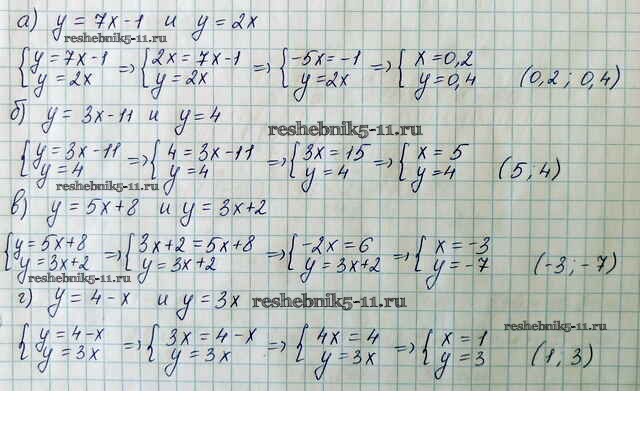 а) y = 7x-1 и y = 2x
reshebnik5-11.ru
{y=7x-1 => {2x=7x-1 => {-5x=-1 => {x=0,2
y=2x y=2x y=2x y=0,4 (0,2; 0,4)
б) y = 3x-11 и y=4
reshebnik5-11.ru
{y=3x-11 => {4=3x-11 => {3x=15 => {x=5
y=4 y=4 y=4 y=4 (5,4)
reshebnik5-11.ru
в) y = 5x+8 и y = 3x+2
{y=5x+8 => {3x+2=5x+8 => {-2x=6 => {x=-3
y=3x+2 y=3x+2 y=3x+2 y=-7 (-3;-7)
reshebnik5-11.ru
г) y = 4-x и y = 3x reshebnik5-11.ru
reshebnik5-11.ru
{y=4-x => {3x=4-x => {4x=4 => {x=1
y=3x y=3x y=3x y=3 (1,3)